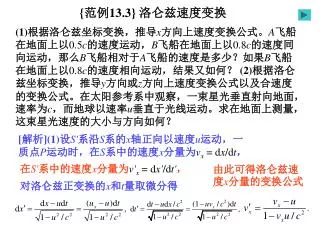 {范例13.3} 洛仑兹速度变换
(1)根据洛仑兹坐标变换，推导x方向上速度变换公式。A飞船
在地面上以0.5c的速度运动，B飞船在地面上以0.8c的速度同
向运动，那么B飞船相对于A飞船的速度是多少？如果B飞船
在地面上以0.8c的速度相向运动，结果又如何？ (2)根据洛仑
兹坐标变换，推导y方向或z方向上速度变换公式以及合速度
的变换公式。在太阳参考系中观察，一束星光垂直射向地面，
速率为c，而地球以速率u垂直于光线运动。求在地面上测量，
这束星光速度的大小与方向如何？
[解析](1)设S'系沿S系的x轴正向以速度u运动，一
质点P运动时，在S系中的速度x分量为vx = dx/dt，
在S'系中的速度x分量为v'x = dx'/dt'，
由此可得洛仑兹速
度x分量的变换公式
对洛仑兹正变换的x和t量取微分得
dx' = (dx − udt)/√(1 − u²/c²) = (vx − u)dt/√(1 − u²/c²)， dt' = (dt − udx/c²)/√(1 − u²/c²) = (1 − uvx/c²)dt/√(1 − u²/c²)， v'x = (vx − u)/(1 − vxu/c²).